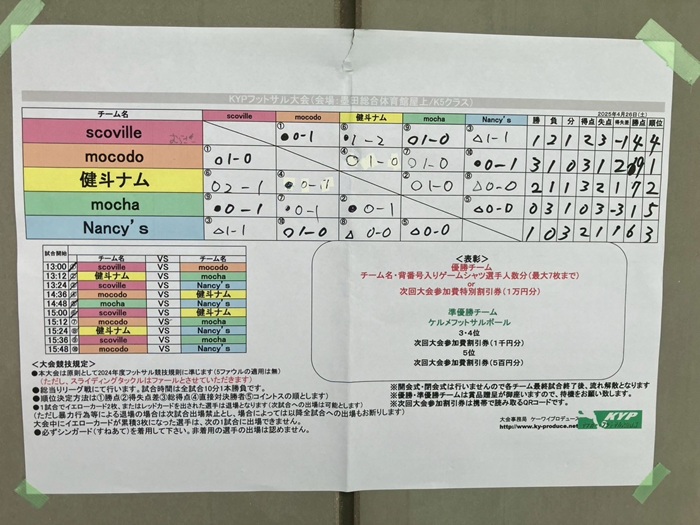 KYPフットサル大会(会場:墨田総合体育館屋上/K5クラス)
2025年4月26日(土)
チーム名 scoville mocodo 健斗ナム mocha Nancy's 勝 負 分 得点 失点 得失差 勝点 順位
scoville ① ●0-1 ⑥ ●1-2 ⑨ ○1-0 ③ △1-1 1 2 1 2 3 -1 4 4
mocodo ① ○1-0 ④ ○1-0 ⑦ ○1-0 ⑩ ●0-1 3 1 0 3 1 2 9 1
健斗ナム ⑥ ○2-1 ④ ●0-1 ② ○1-0 ⑧ △0-0 2 1 1 3 2 1 7 2
mocha ⑨ ●0-1 ⑦ ●0-1 ② ●0-1 ⑤ △0-0 0 3 1 0 3 -3 1 5
Nancy's ③ △1-1 ⑩ ○1-0 ⑧ △0-0 ⑤ △0-0 1 0 3 2 1 1 6 3
試合開始 チーム名 VS チーム名
13:00 ① scoville VS mocodo
13:12 ② 健斗ナム VS mocha
13:24 ③ scoville VS Nancy's
14:36 ④ mocodo VS 健斗ナム
14:48 ⑤ mocha VS Nancy's
15:00 ⑥ scoville VS 健斗ナム
15:12 ⑦ mocodo VS mocha
15:24 ⑧ 健斗ナム VS Nancy's
15:36 ⑨ scoville VS mocha
15:48 ⑩ mocodo VS Nancy's
<表彰>
優勝チーム
チーム名・背番号入りゲームシャツ選手人数分(最大7枚まで)
or
次回大会参加費特別割引券(1万円分)
準優勝チーム
ケルメフットサルボール
3・4位
次回大会参加費割引券(1千円分)
5位
次回大会参加費割引券(5百円分)
<大会競技規定>
●本大会は原則として2024年度フットサル競技規則に準じます(5ファウルの適用は無)
(ただし、スライディングタックルはファールとさせていただきます)
●総当りリーグ戦にて行います。試合時間は全試合10分1本勝負です。
●順位決定方法は①勝点②得失点差③総得点④直接対決勝者⑤コイントスの順とします)
●1試合でイエローカード2枚、またはレッドカードを出された選手は退場となります(次試合への出場は可能とします)
(ただし暴力行為等による退場の場合は次試合出場禁止とし、場合によっては以降全試合への出場もお断りします)
大会中にイエローカードが累積3枚になった選手は、次の1試合に出場できません。
●必ずシンガード(すねあて)を着用して下さい。非着用の選手の出場は認めません。
※開会式・閉会式は行いませんので各チーム最終試合終了後、流れ解散となります
※優勝・準優勝チームは賞品贈呈が御座いますので、待機をお願い致します。
※次回大会参加割引券は携帯で読み取るQRコードです。
大会事務局 ケーワイプロデュース
http://www.ky-produce.net
KYP